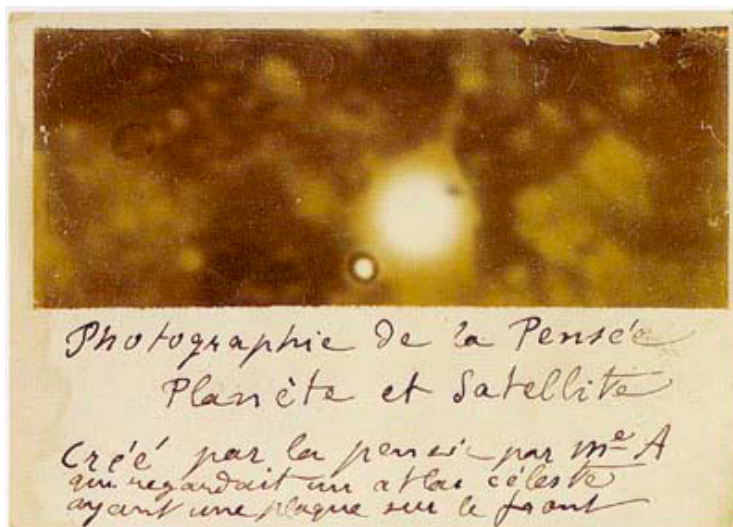 Photographie de la Pensée
Planète et Satellite
Créé par la pensée par Mᵉ A
qui regardait un atlas céleste
ayant une plaque sur le front